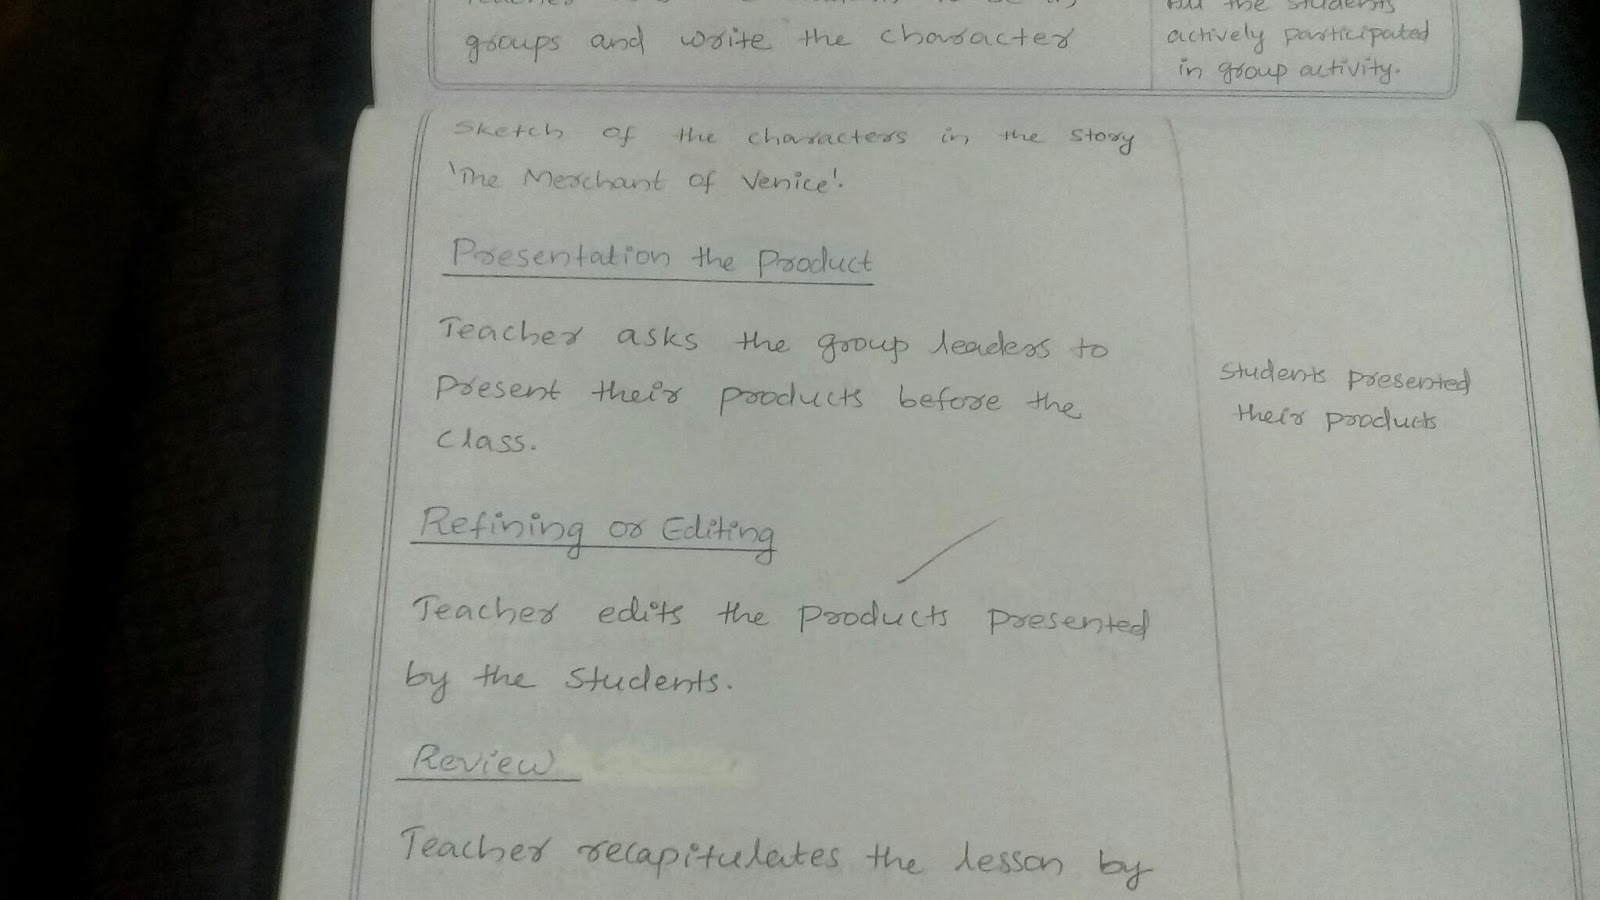 groups and write the character
All the students
actively participated
in group activity.
Sketch of the characters in the story
'The Merchant of Venice'.
Presentation the Product
Teacher asks the group leaders to
present their products before the
class.
Students presented
their products
Refining or Editing
Teacher edits the products presented
by the students.
Review
Teacher recapitulates the lesson by